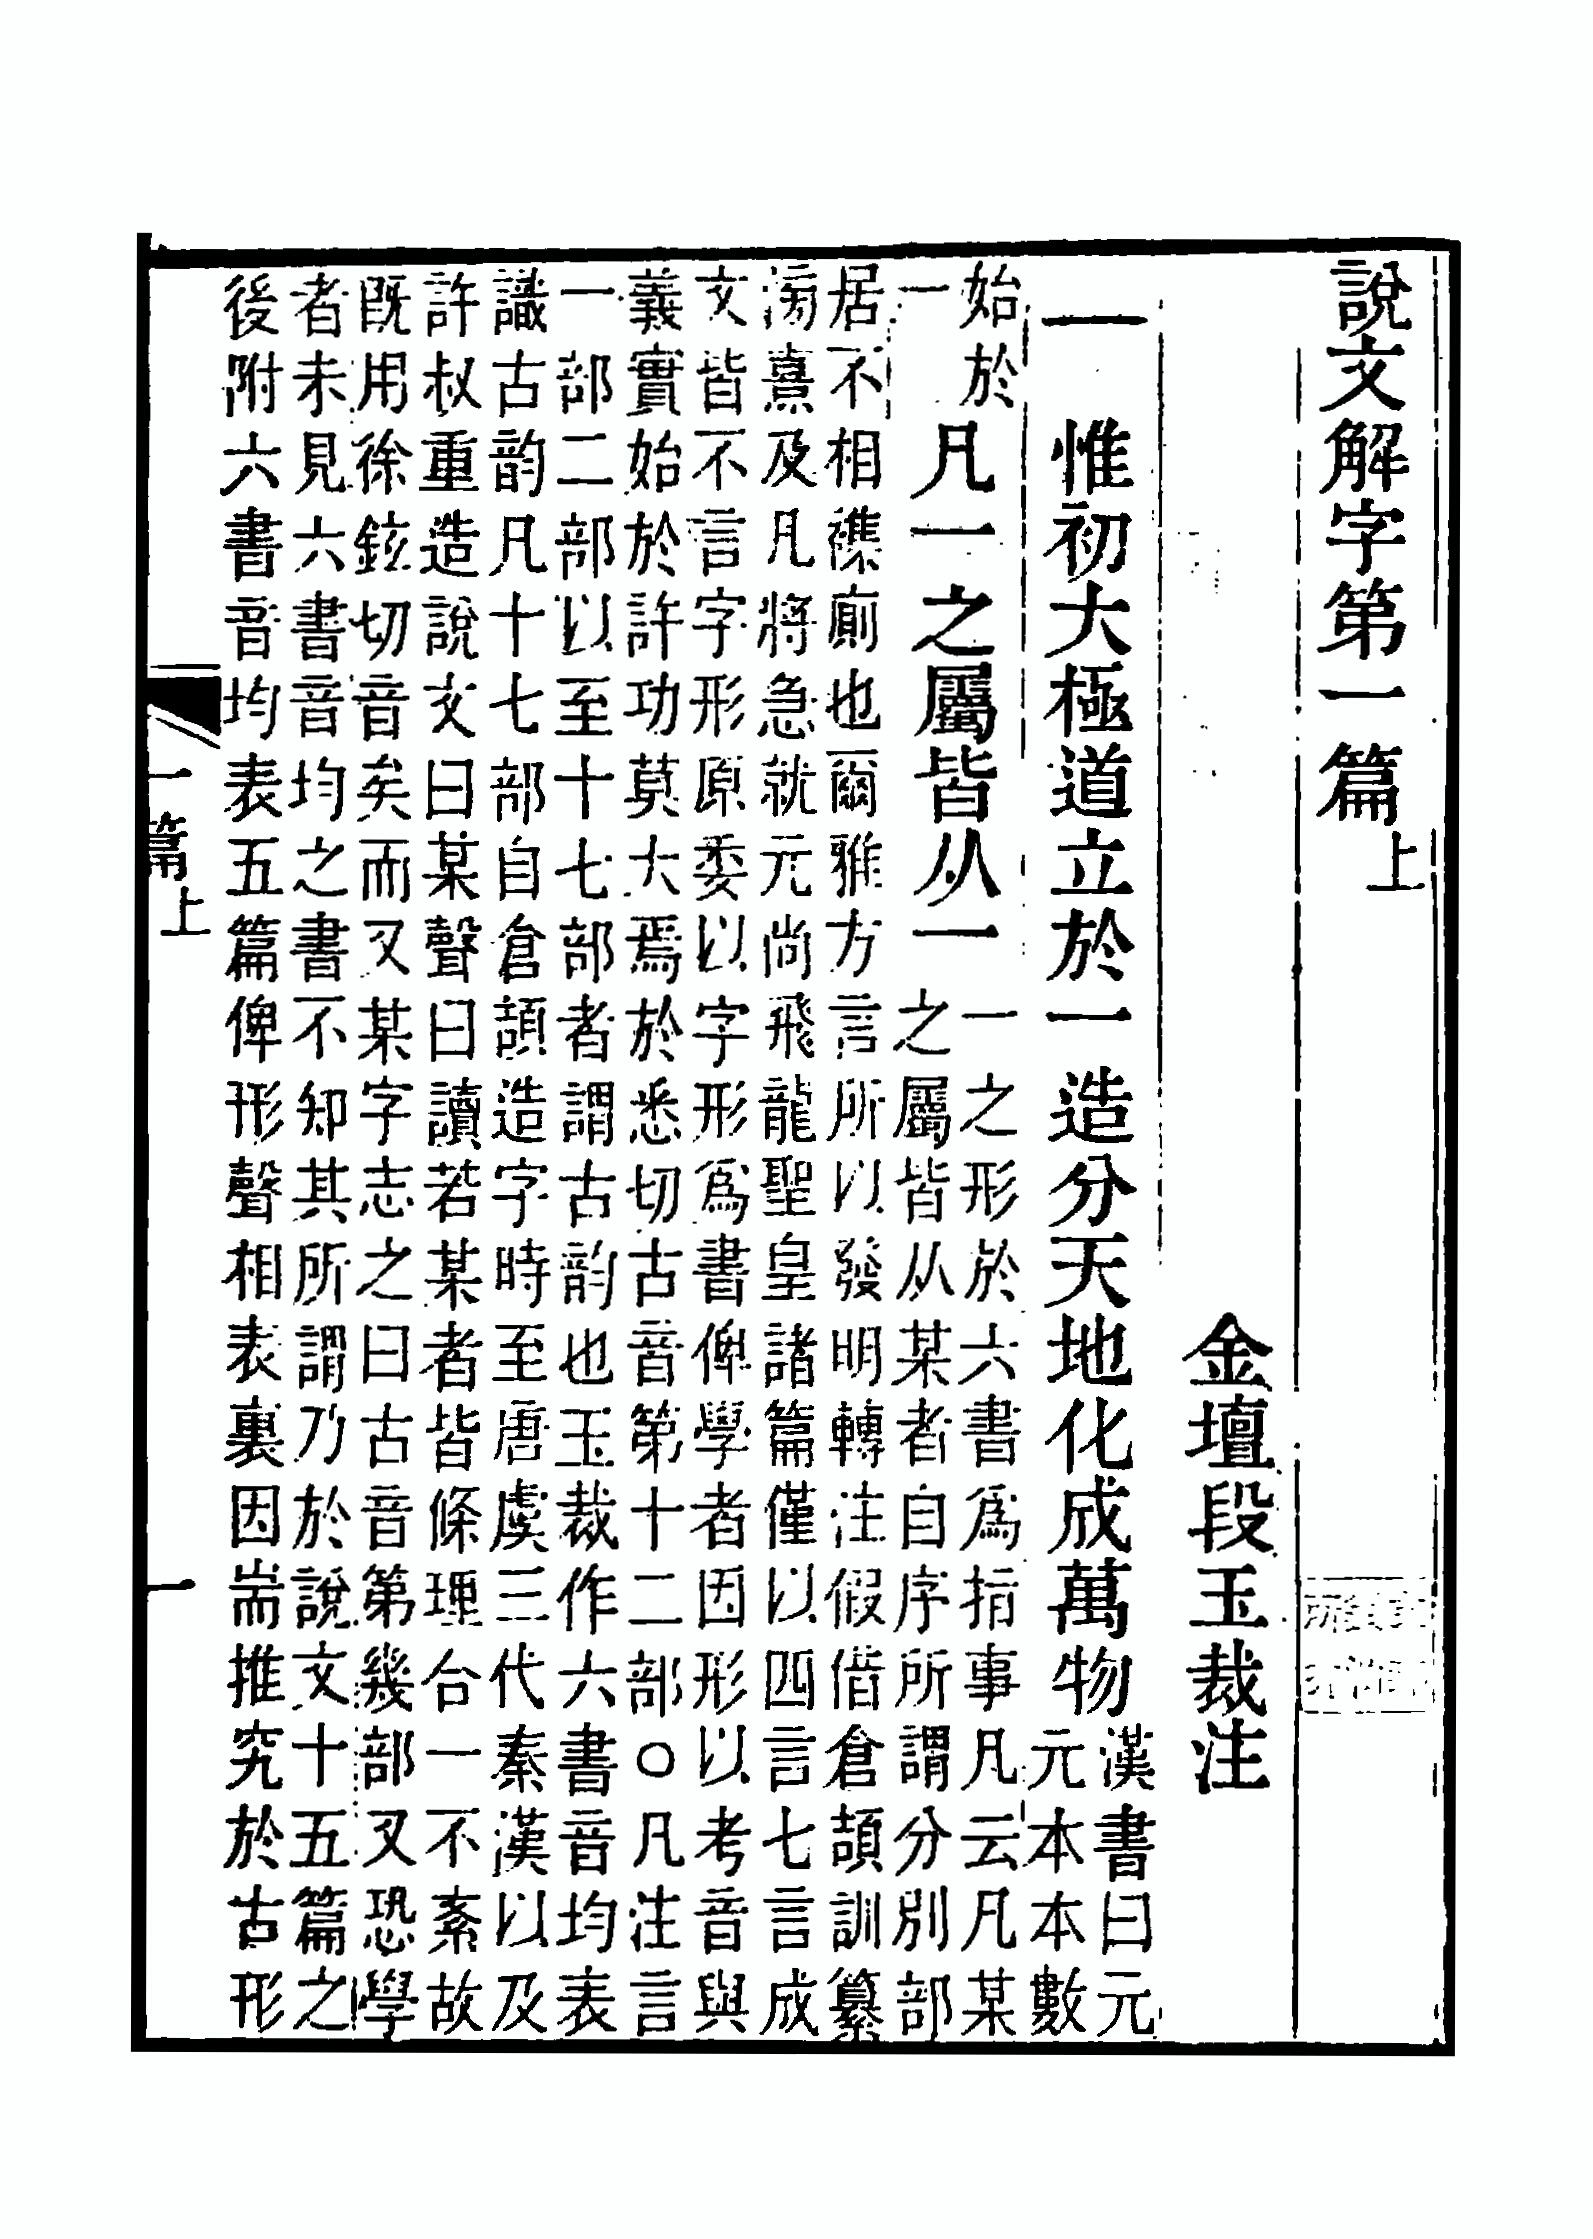 說文解字第一篇上
金壇段玉裁注
一 惟初大極道立於一造分天地化成萬物
漢書曰元
元本本數
始於
一
凡一之屬皆从一
一之形於六書爲指事凡云凡某
之屬皆从某者自序所謂分別部
居不相襍廁也爾雅方言所以發明轉注假借倉頡訓纂
滂熹及凡將急就元尚飛龍聖皇諸篇僅以四言七言成
文皆不言字形原委以字形爲書俾學者因形以考音與
義實始於許功莫大焉於悉切古音第十二部○凡注言
一部二部以至十七部者謂古韵也玉裁作六書音均表
識古韵凡十七部自倉頡造字時至唐虞三代秦漢以及
許叔重造說文曰某聲曰讀若某者皆條理合一不紊故
既用徐鉉切音矣而又某字志之曰古音第幾部又恐學
者未見六書音均之書不知其所謂乃於說文十五篇之
後附六書音均表五篇俾形聲相表裏因耑推究於古形
一篇上
一